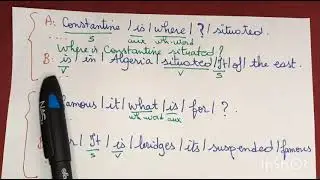 A: Constantine / is / where / ? / situated.
S aux wh-word V
Where is Constantine situated?
B: is / in / Algeria / situated / It / of / the east.
V V S
famous it / what / is / for / ?
S wh-word aux
/ It / is / bridges / its / suspended / famous
S V
InShot